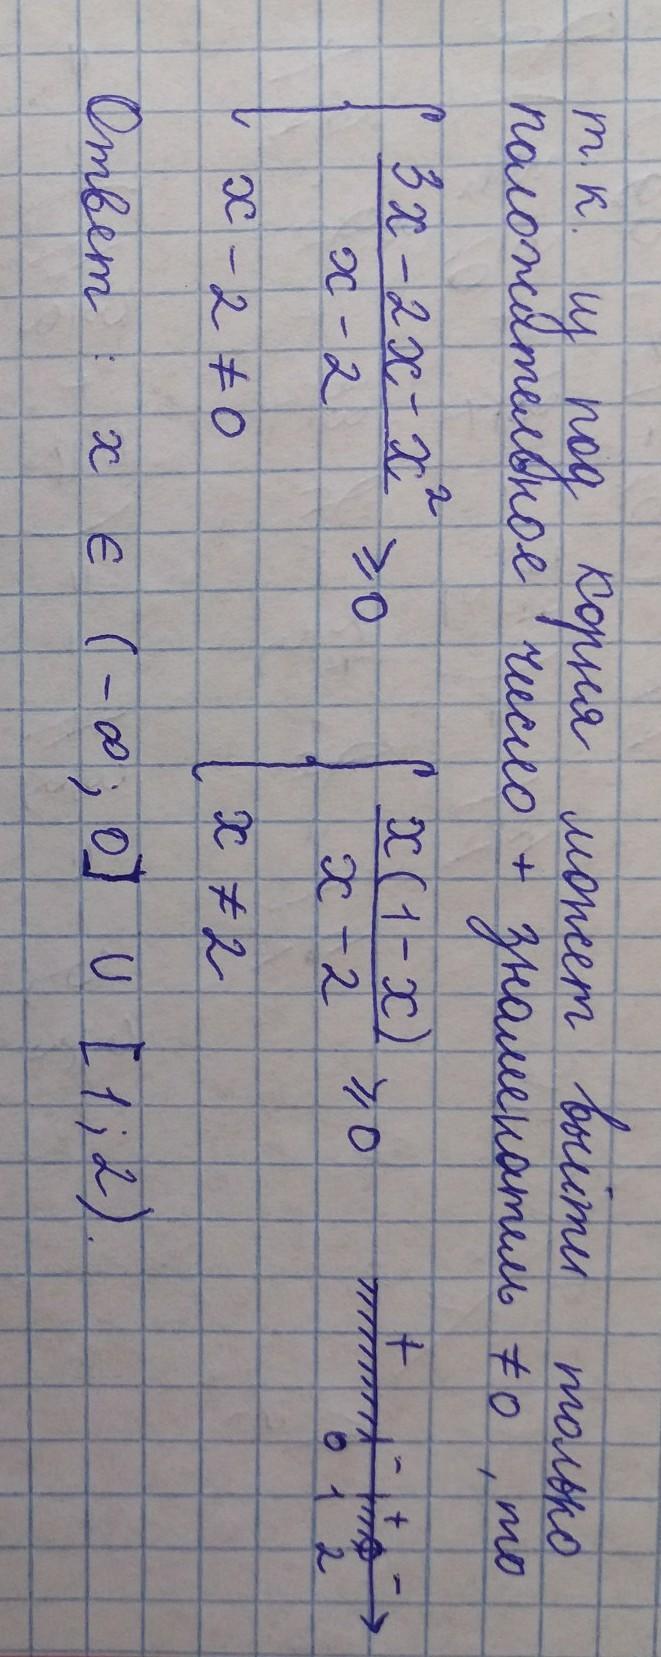 т.к. из под корня может выйти только
положительное число + знаменатель ≠ 0, то
{ (3x - 2x - x²)/(x - 2) ⩾ 0 { x(1 - x)/(x - 2) ⩾ 0 + - + -
x - 2 ≠ 0 x ≠ 2 0 1 2
Ответ: x ∈ (-∞; 0] ∪ [1; 2).